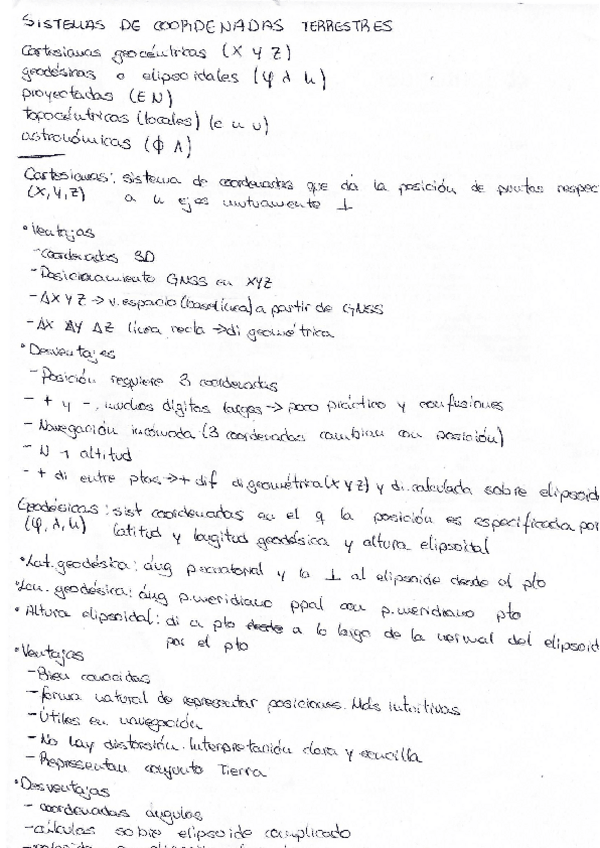 SISTEMAS DE COORDENADAS TERRESTRES
Cartesianas geocéntricas (X Y Z)
geodésicas o elipsoidales (φ λ h)
proyectadas (E N)
topocéntricas (locales) (e n u)
astronómicas (Φ Λ)
Cartesianas: sistema de coordenadas que da la posición de puntos respec
(X, Y, Z) a n ejes mutuamente ⊥
• Ventajas
- Coordenadas 3D
- Posicionamiento GNSS en XYZ
- ΔX Y Z → v. espacio (baselínea) a partir de GNSS
- ΔX ΔY ΔZ línea recta → di geométrica
• Desventajas
- Posición requiere 3 coordenadas
- + y -, muchos dígitos largos → poco práctico y confusiones
- Navegación incómoda (3 coordenadas cambian con posición)
- N altitud
- + di entre ptos → + dif di geométrica (X Y Z) y di. calculada sobre elipsoid
Geodésicas: sist coordenadas en el q la posición es especificada por
(φ, λ, h) latitud y longitud geodésica y altura elipsoidal
• Lat. geodésica: áng p.ecuatorial y la ⊥ al elipsoide desde el pto
• Lon. geodésica: áng p.meridiano ppal con p.meridiano pto
• Altura elipsoidal: di a pto a lo largo de la normal del elipsoid
por el pto
• Ventajas
- Bien conocidas
- forma natural de representar posiciones. Más intuitivas
- Útiles en navegación
- No hay distorsión. Interpretación clara y sencilla
- Representan conjunto Tierra
• Desventajas
- coordenadas ángulos
- cálculos sobre elipsoide complicado